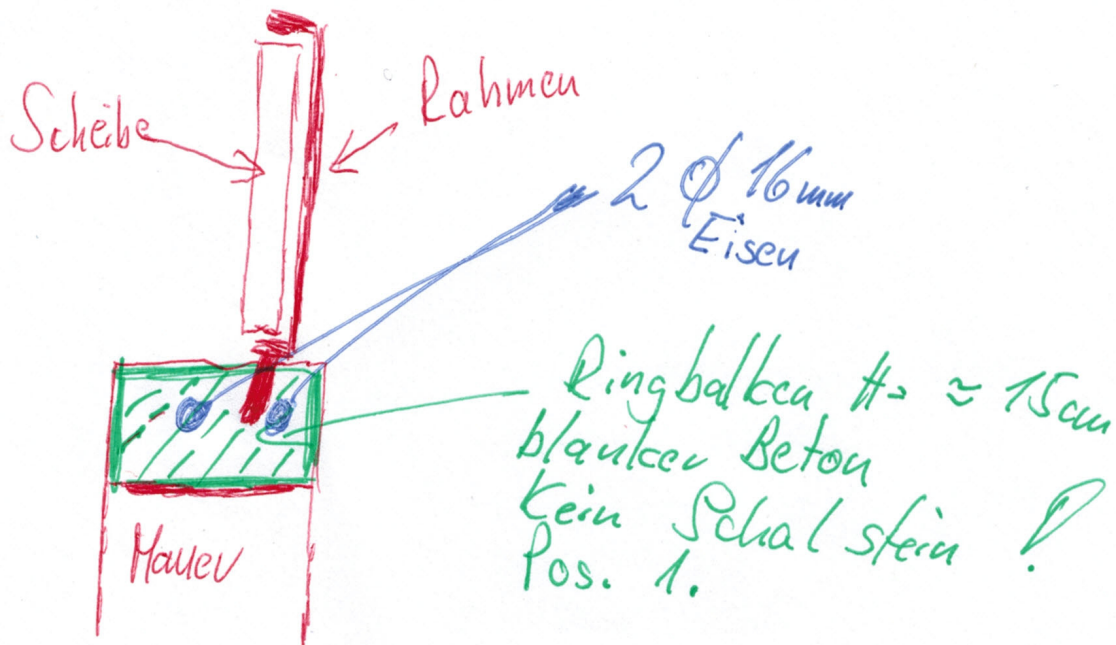 Scheibe
Rahmen
2 ϕ 16 mm
Eisen
Ringbalken H= ≈ 15cm
blanker Beton
Kein Schalstein !
Pos. 1.
Mauer